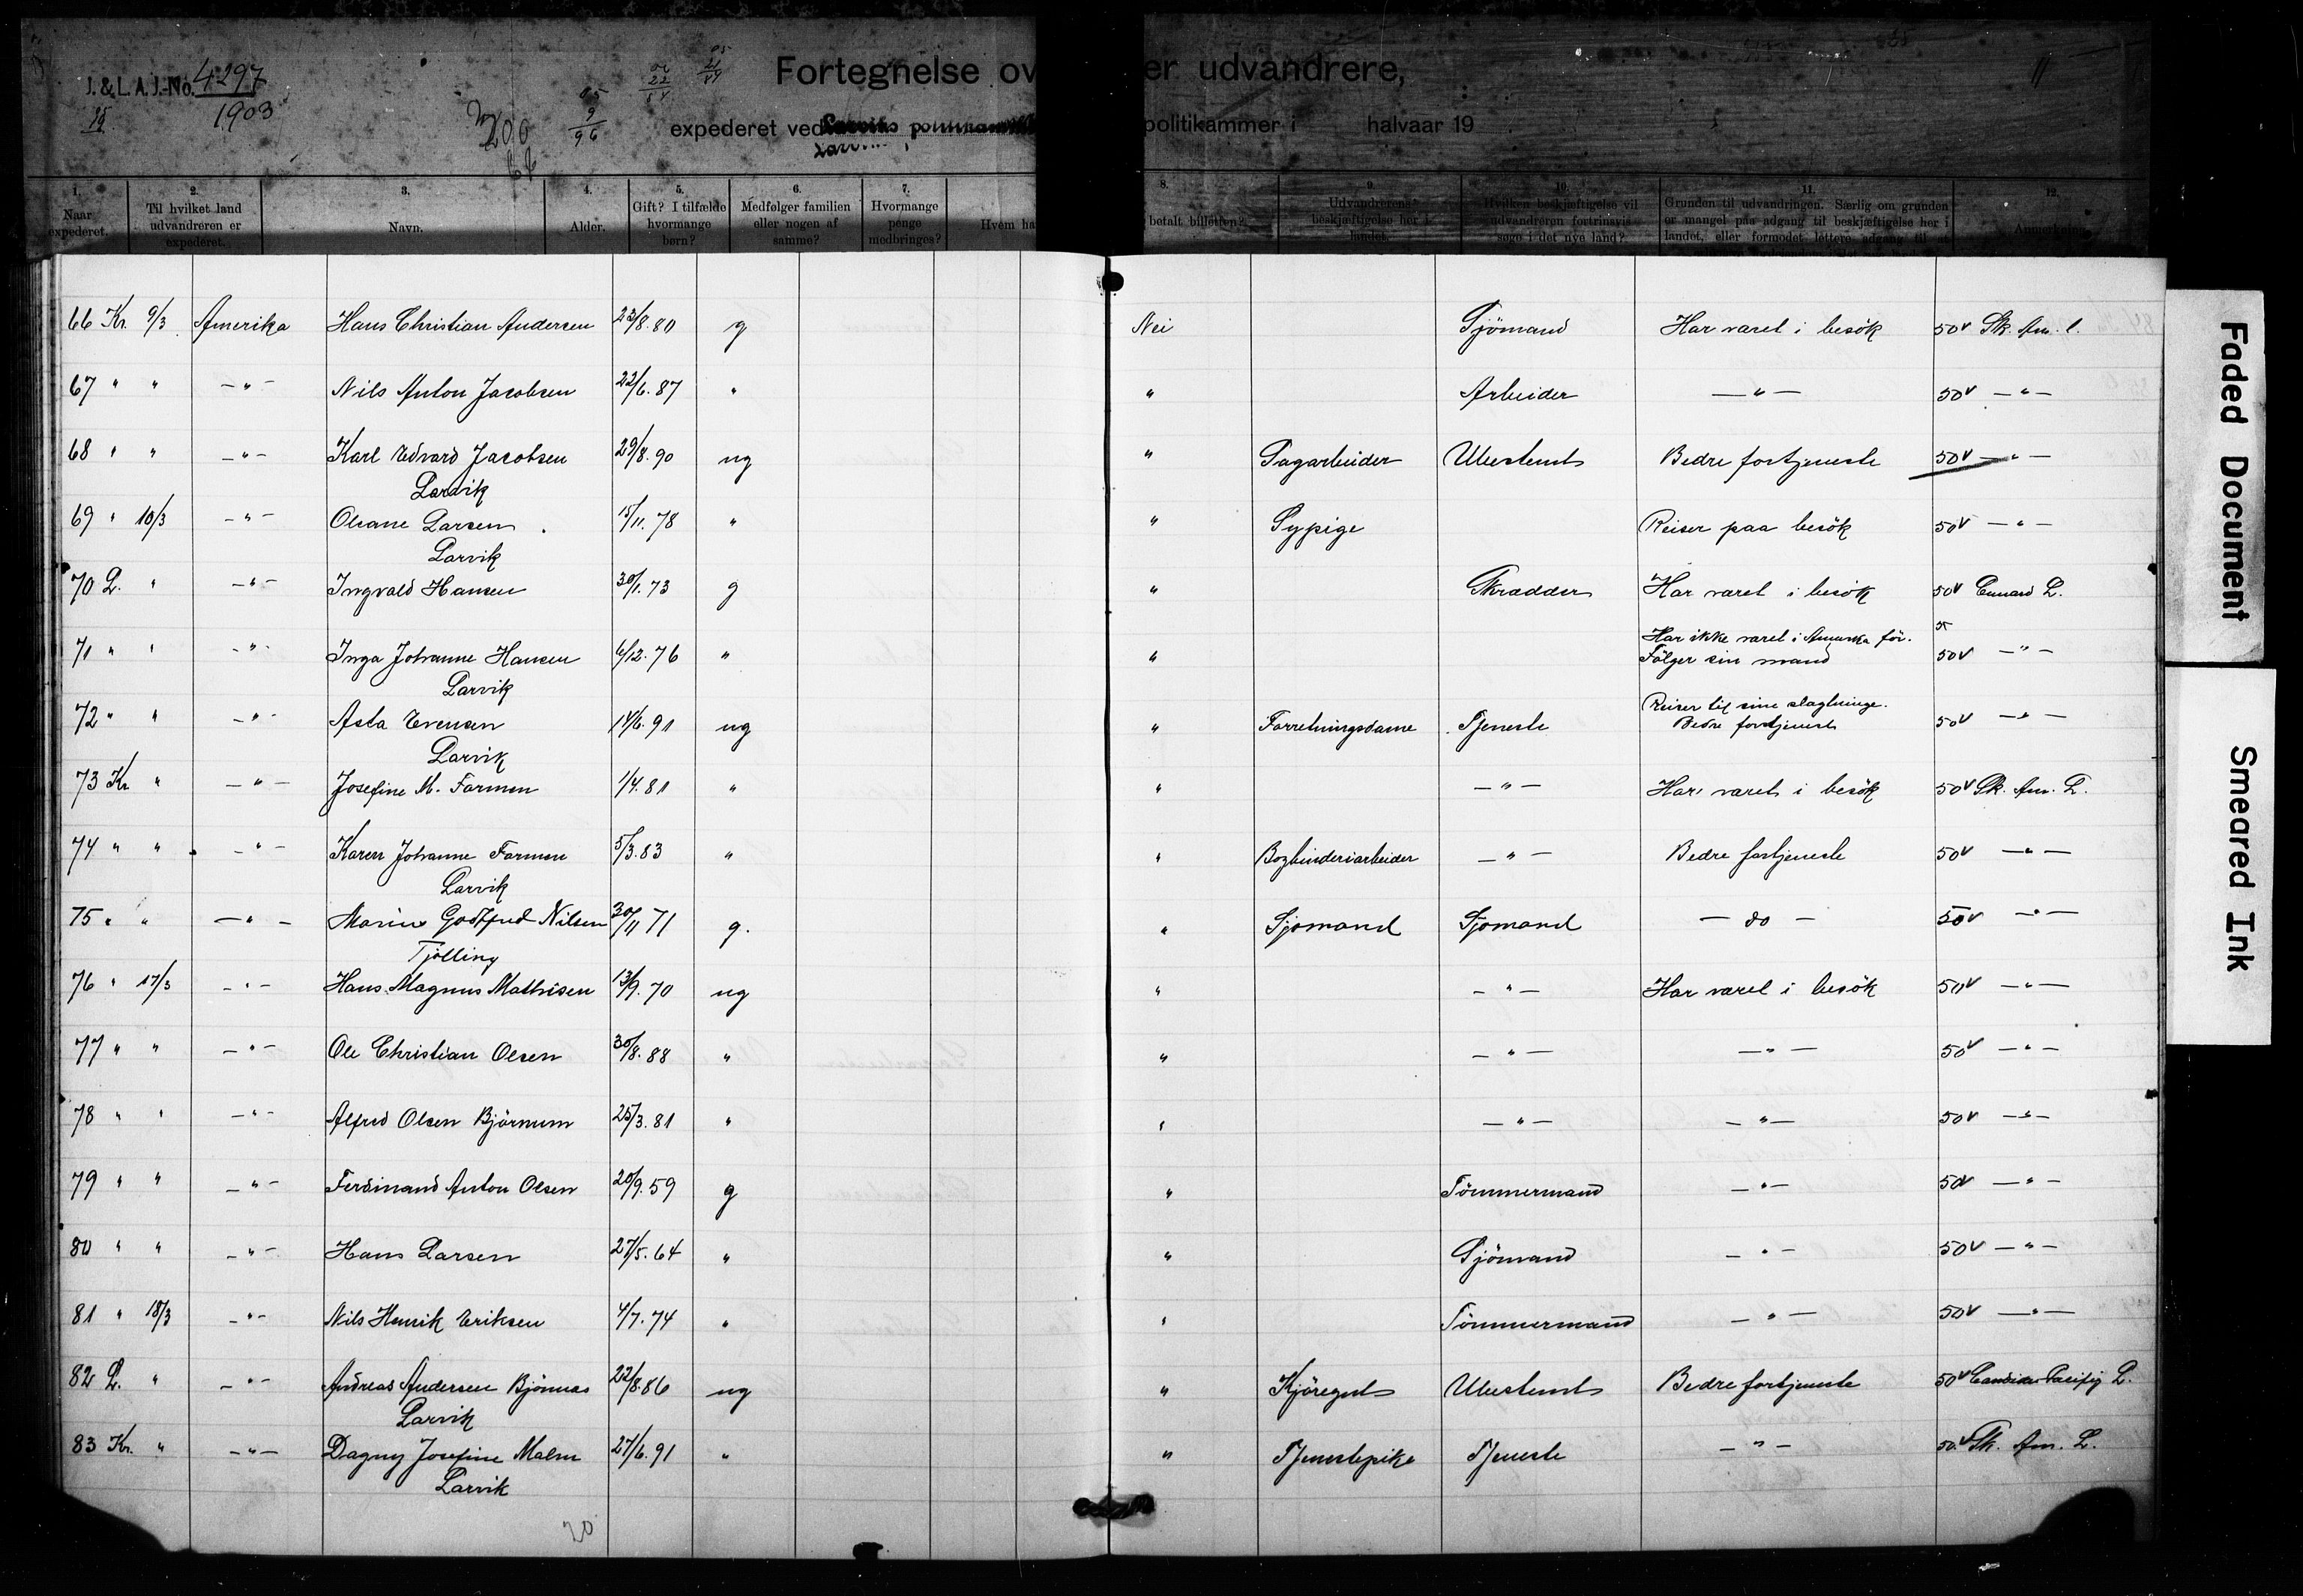 J. & L. A. J.-No. 4297
1903
Fortegnelse ov er udvandrere,
expederet ved Larviks politikammer i halvaar 19
1. Naar expederet.
2. Til hvilket land udvandreren er expederet.
3. Navn.
4. Alder.
5. Gift? I tilfælde hvormange børn?
6. Medfølger familien eller nogen af samme?
7. Hvormange penge medbringes?
Hvem ha
8. betalt billetten?
9. Udvandrerens beskjæftigelse her i landet.
10. Hvilken beskjæftigelse vil udvandreren fortrinsvis søge i det nye land?
11. Grunden til udvandringen. Særlig om grunden er mangel paa adgang til beskjæftigelse her i landet, eller formodet lettere adgang til at
12. Anmerkning
66 Kr. 9/3 Amerika Hans Christian Andersen 23/8. 80 g Nei Sjömand Har varet i besök 50 v Sk. Am. l.
67 " " — " — Nils Anton Jacobsen 22/6. 87 " " Arbeider — " — 50 v — " —
68 " " — " — Karl Edvard Jacobsen 29/8. 90 ug " Sagarbeider Ubestemt Bedre fortjeneste 50 v — " —
Larvik
69 " 10/3 — " — Oleane Larsen 15/11. 78 " " Sypige Reiser paa besök 50 v — " —
Larvik
70 L. " — " — Ingvald Hansen 30/1. 73 g " Skrædder Har varet i besök 50 v Cunard L.
71 " " — " — Inga Johanne Hansen 6/12. 76 " " Har ikke varet i Amerika för.
Fölger sin mand 50 v — " —
Larvik
72 " " — " — Asta Evensen 14/6. 91 ug " Forretningsdame Tjeneste Reiser til sine slægtninge.
Bedre fortjeneste 50 v — " —
Larvik
73 Kr " — " — Josefine M. Farmen 1/4. 81 " " — " — Har varet i besök 50 v Sk. Am. L.
74 " " — " — Karen Johanne Farmen 5/3. 83 " " Bogbinderiarbeider — " — Bedre fortjeneste 50 v — " —
Larvik
75 " " — " — Marius Godtfred Nilsen 30/11 71 g. " Sjomand Sjomand — do — 50 v — " —
Tjölling
76 " 17/3 — " — Hans Magnus Mathisen 13/9. 70 ug " — " — Har varet i besök 50 v — " —
77 " " — " — Ole Christian Olsen 30/8. 88 " " — " — — " — 50 v — " —
78 " " — " — Alfred Olsen Björnum 25/3. 81 " " — " — — " — 50 v — " —
79 " " — " — Ferdinand Anton Olsen 20/9. 59 g " Tömmermand — " — 50 v — " —
80 " " — " — Hans Larsen 27/5. 64 " " Sjömand — " — 50 v — " —
81 " 18/3 — " — Nils Henrik Eriksen 4/7. 74 " " Tömmermand — " — 50 v — " —
82 L. " — " — Andreas Andersen Bjönnes 22/8. 86 ug " Kjöregut Ubestemt Bedre fortjeneste 50 v Candian Pacifig L.
Larvik
83 Kr. " — " — Dagny Josefine Malm 27/6. 91 " " Tjenestepike Tjeneste — " — 50 v Sk. Am. L.
Larvik
20
Faded Document
Smeared Ink